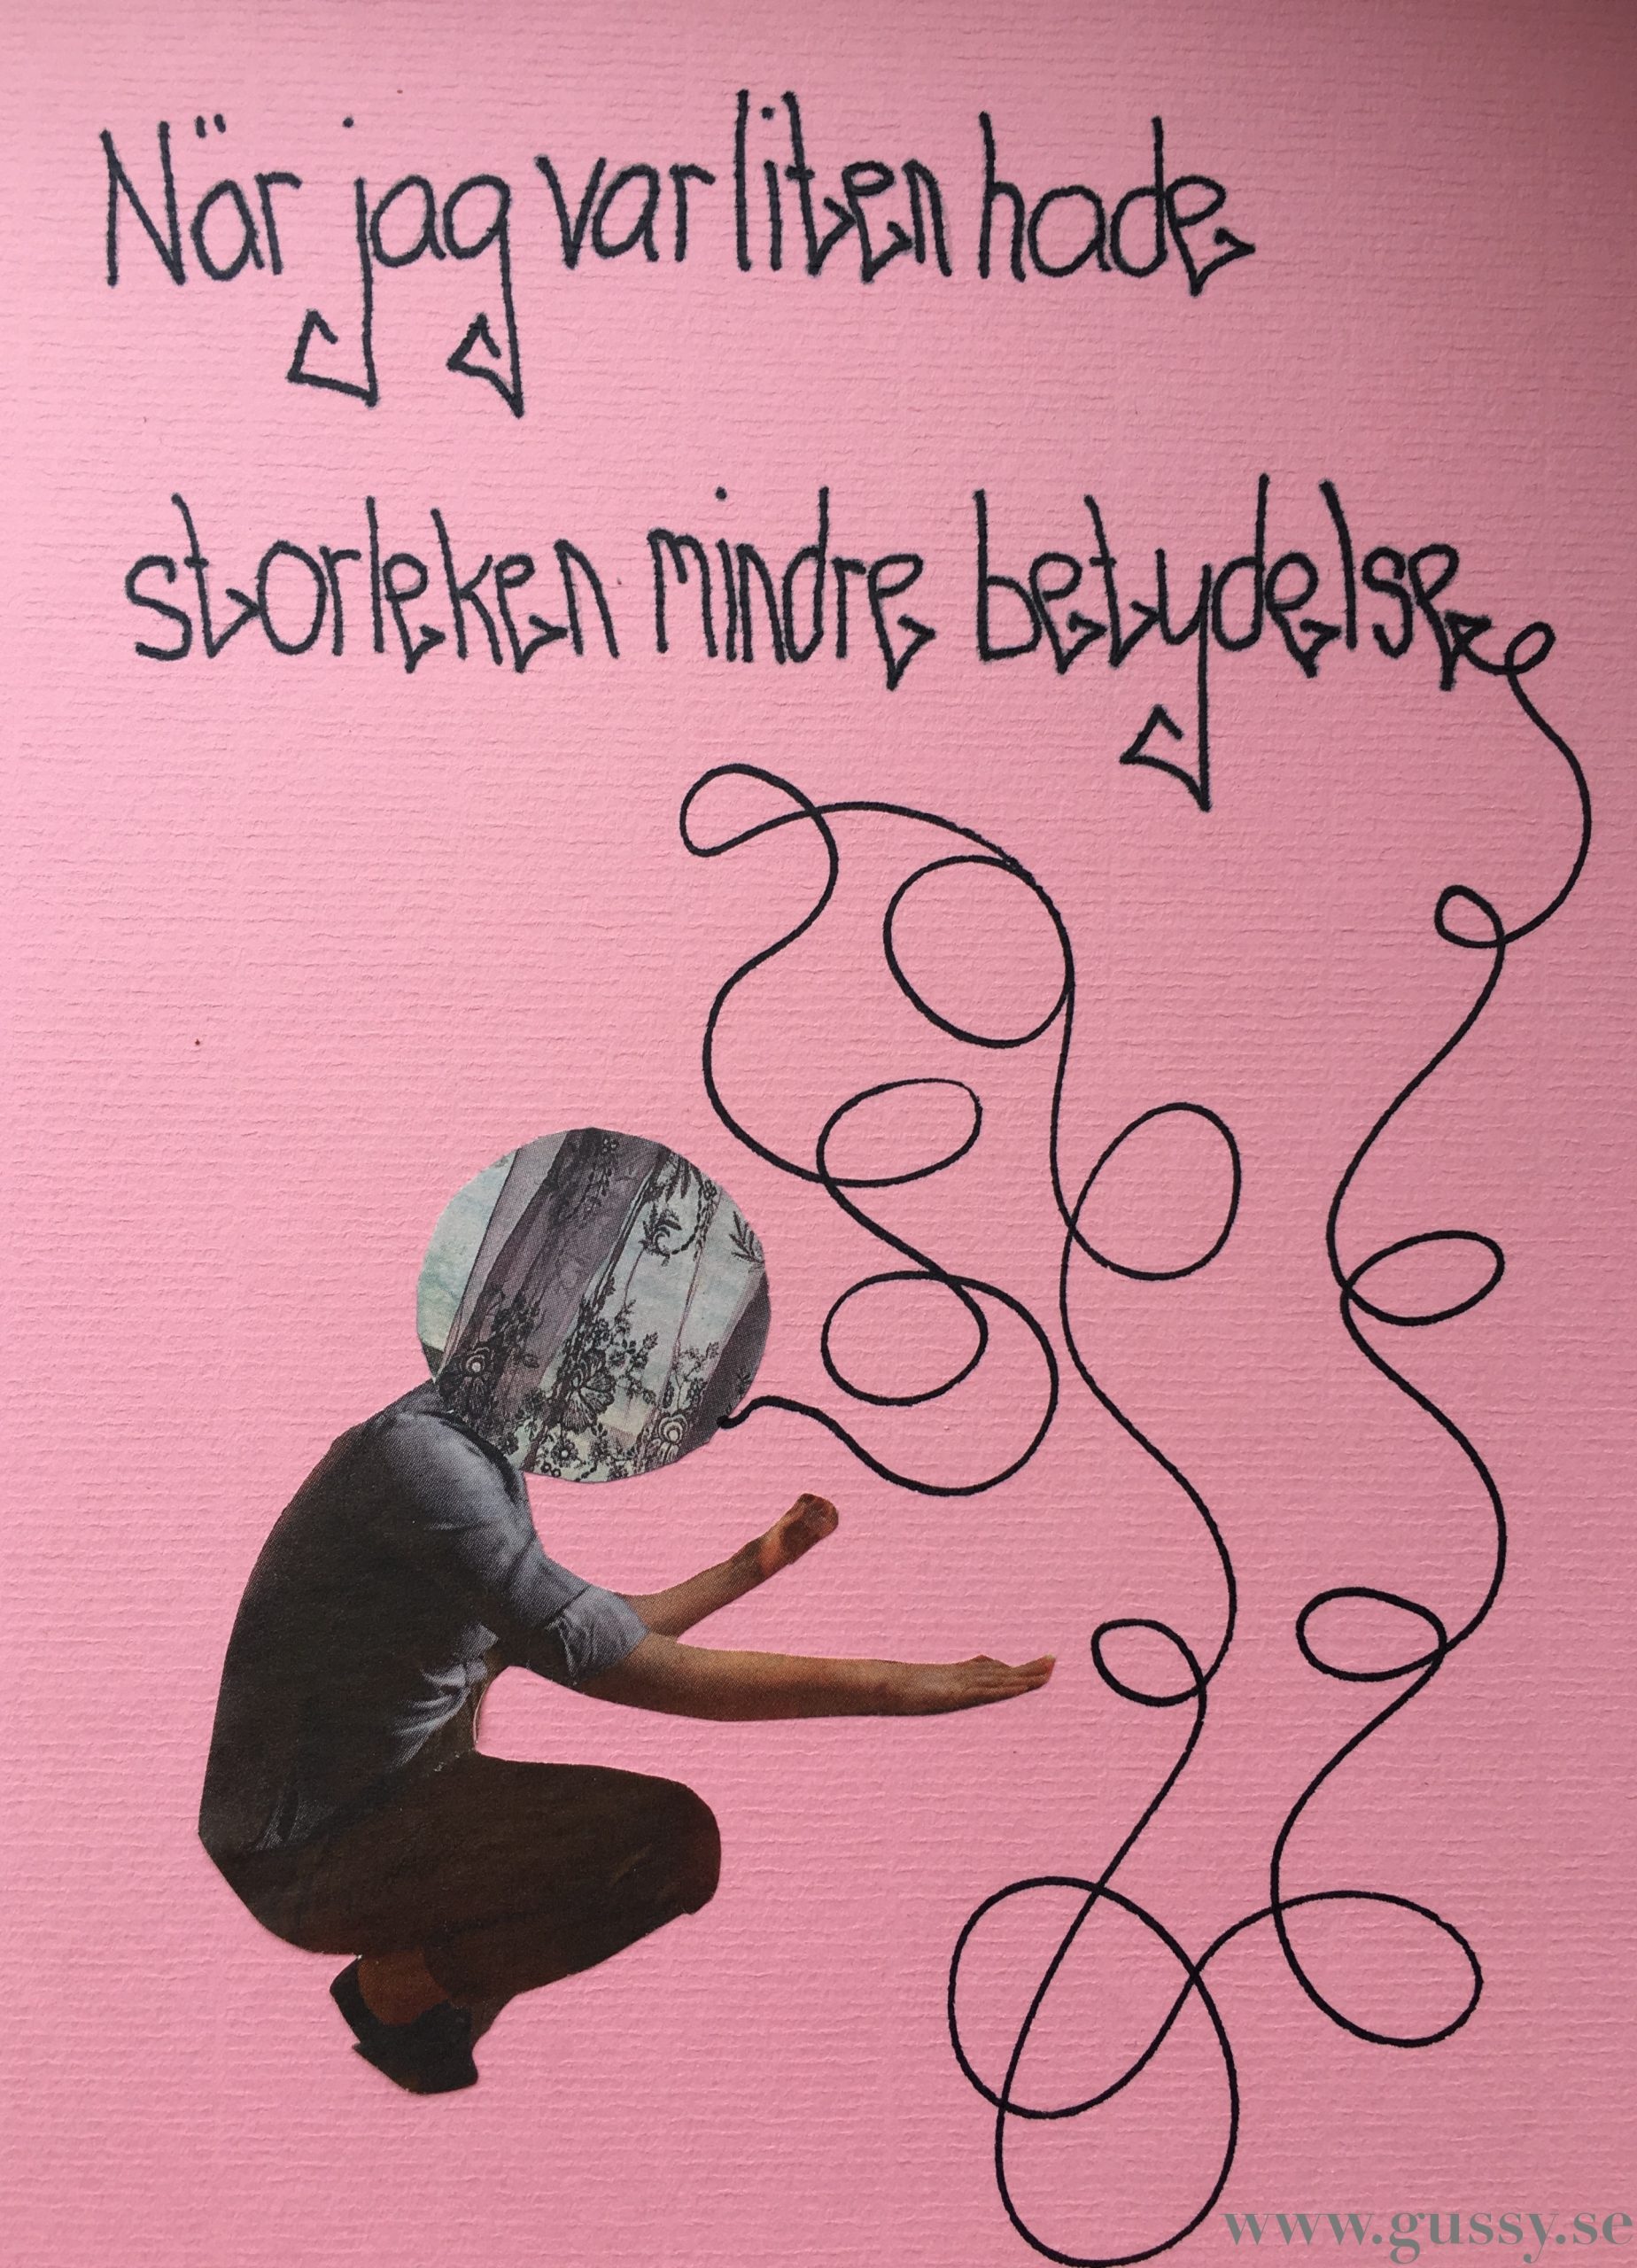 När jag var liten hade
storleken mindre betydelse
www.gussy.se